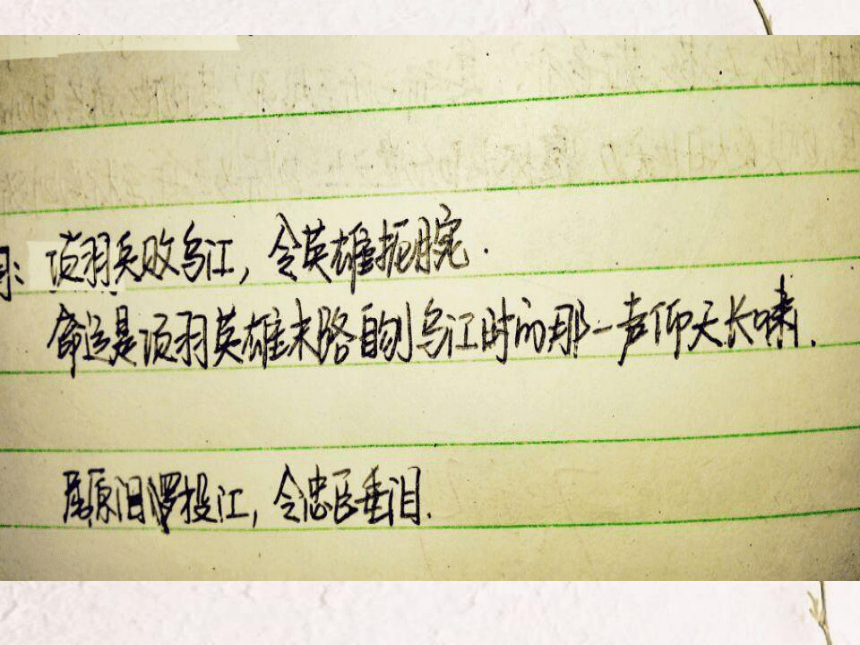 项羽兵败乌江，令英雄扼腕.
命运是项羽英雄末路自刎乌江时的那一声仰天长啸.
屈原汨罗投江，令忠臣垂泪.